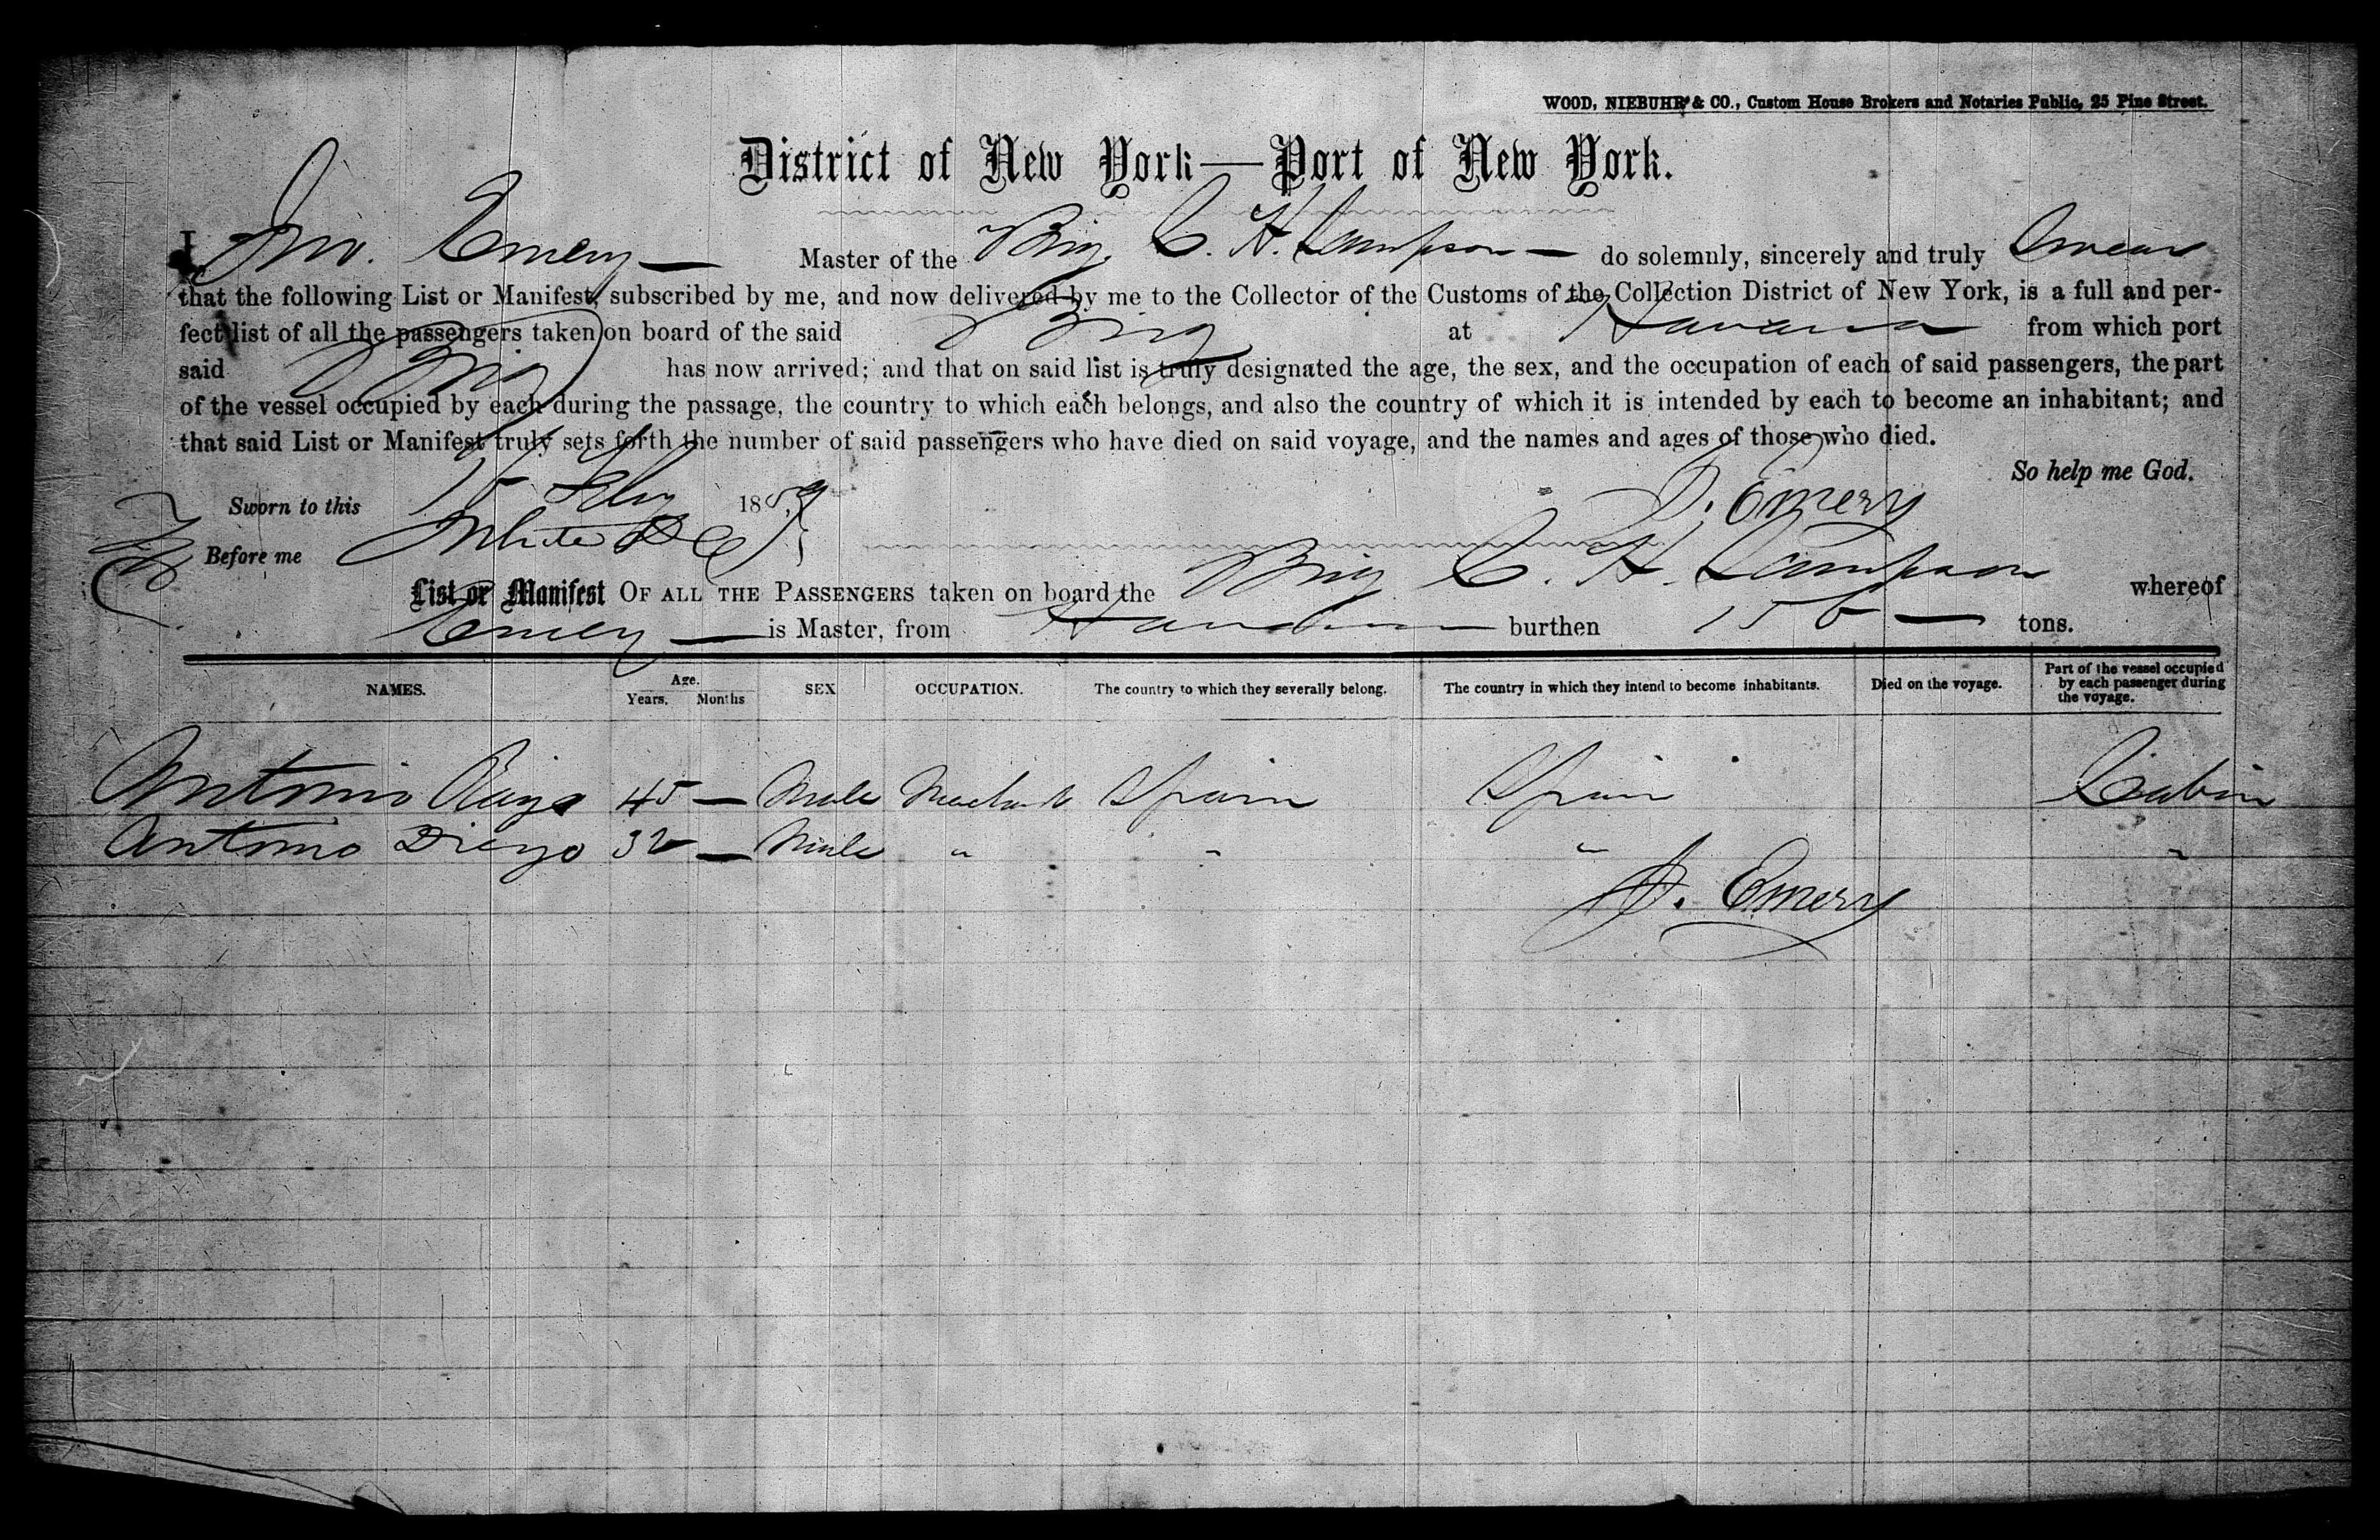 WOOD, NIEBUHR & CO., Custom House Brokers and Notaries Public, 25 Pine Street.
District of New York—Port of New York.
I Jno. Emery — Master of the Brig C. H. Sampson — do solemnly, sincerely and truly Swear
that the following List or Manifest, subscribed by me, and now delivered by me to the Collector of the Customs of the Collection District of New York, is a full and per-
fect list of all the passengers taken on board of the said Brig at Havana from which port
said Brig has now arrived; and that on said list is truly designated the age, the sex, and the occupation of each of said passengers, the part
of the vessel occupied by each during the passage, the country to which each belongs, and also the country of which it is intended by each to become an inhabitant; and
that said List or Manifest truly sets forth the number of said passengers who have died on said voyage, and the names and ages of those who died.
So help me God.
Sworn to this 15 Feby 1859 J. Emery
Before me
List or Manifest OF ALL THE PASSENGERS taken on board the Brig C. H. Sampson whereof
Emery — is Master, from Havana burthen 156 — tons.
NAMES. Age. Years. Months SEX OCCUPATION. The country to which they severally belong. The country in which they intend to become inhabitants. Died on the voyage. Part of the vessel occupied by each passenger during the voyage.
Antonio 45 — Male Merchant Spain Spain Cabin
Antonio Diego 32 — Male " " " "
J. Emery